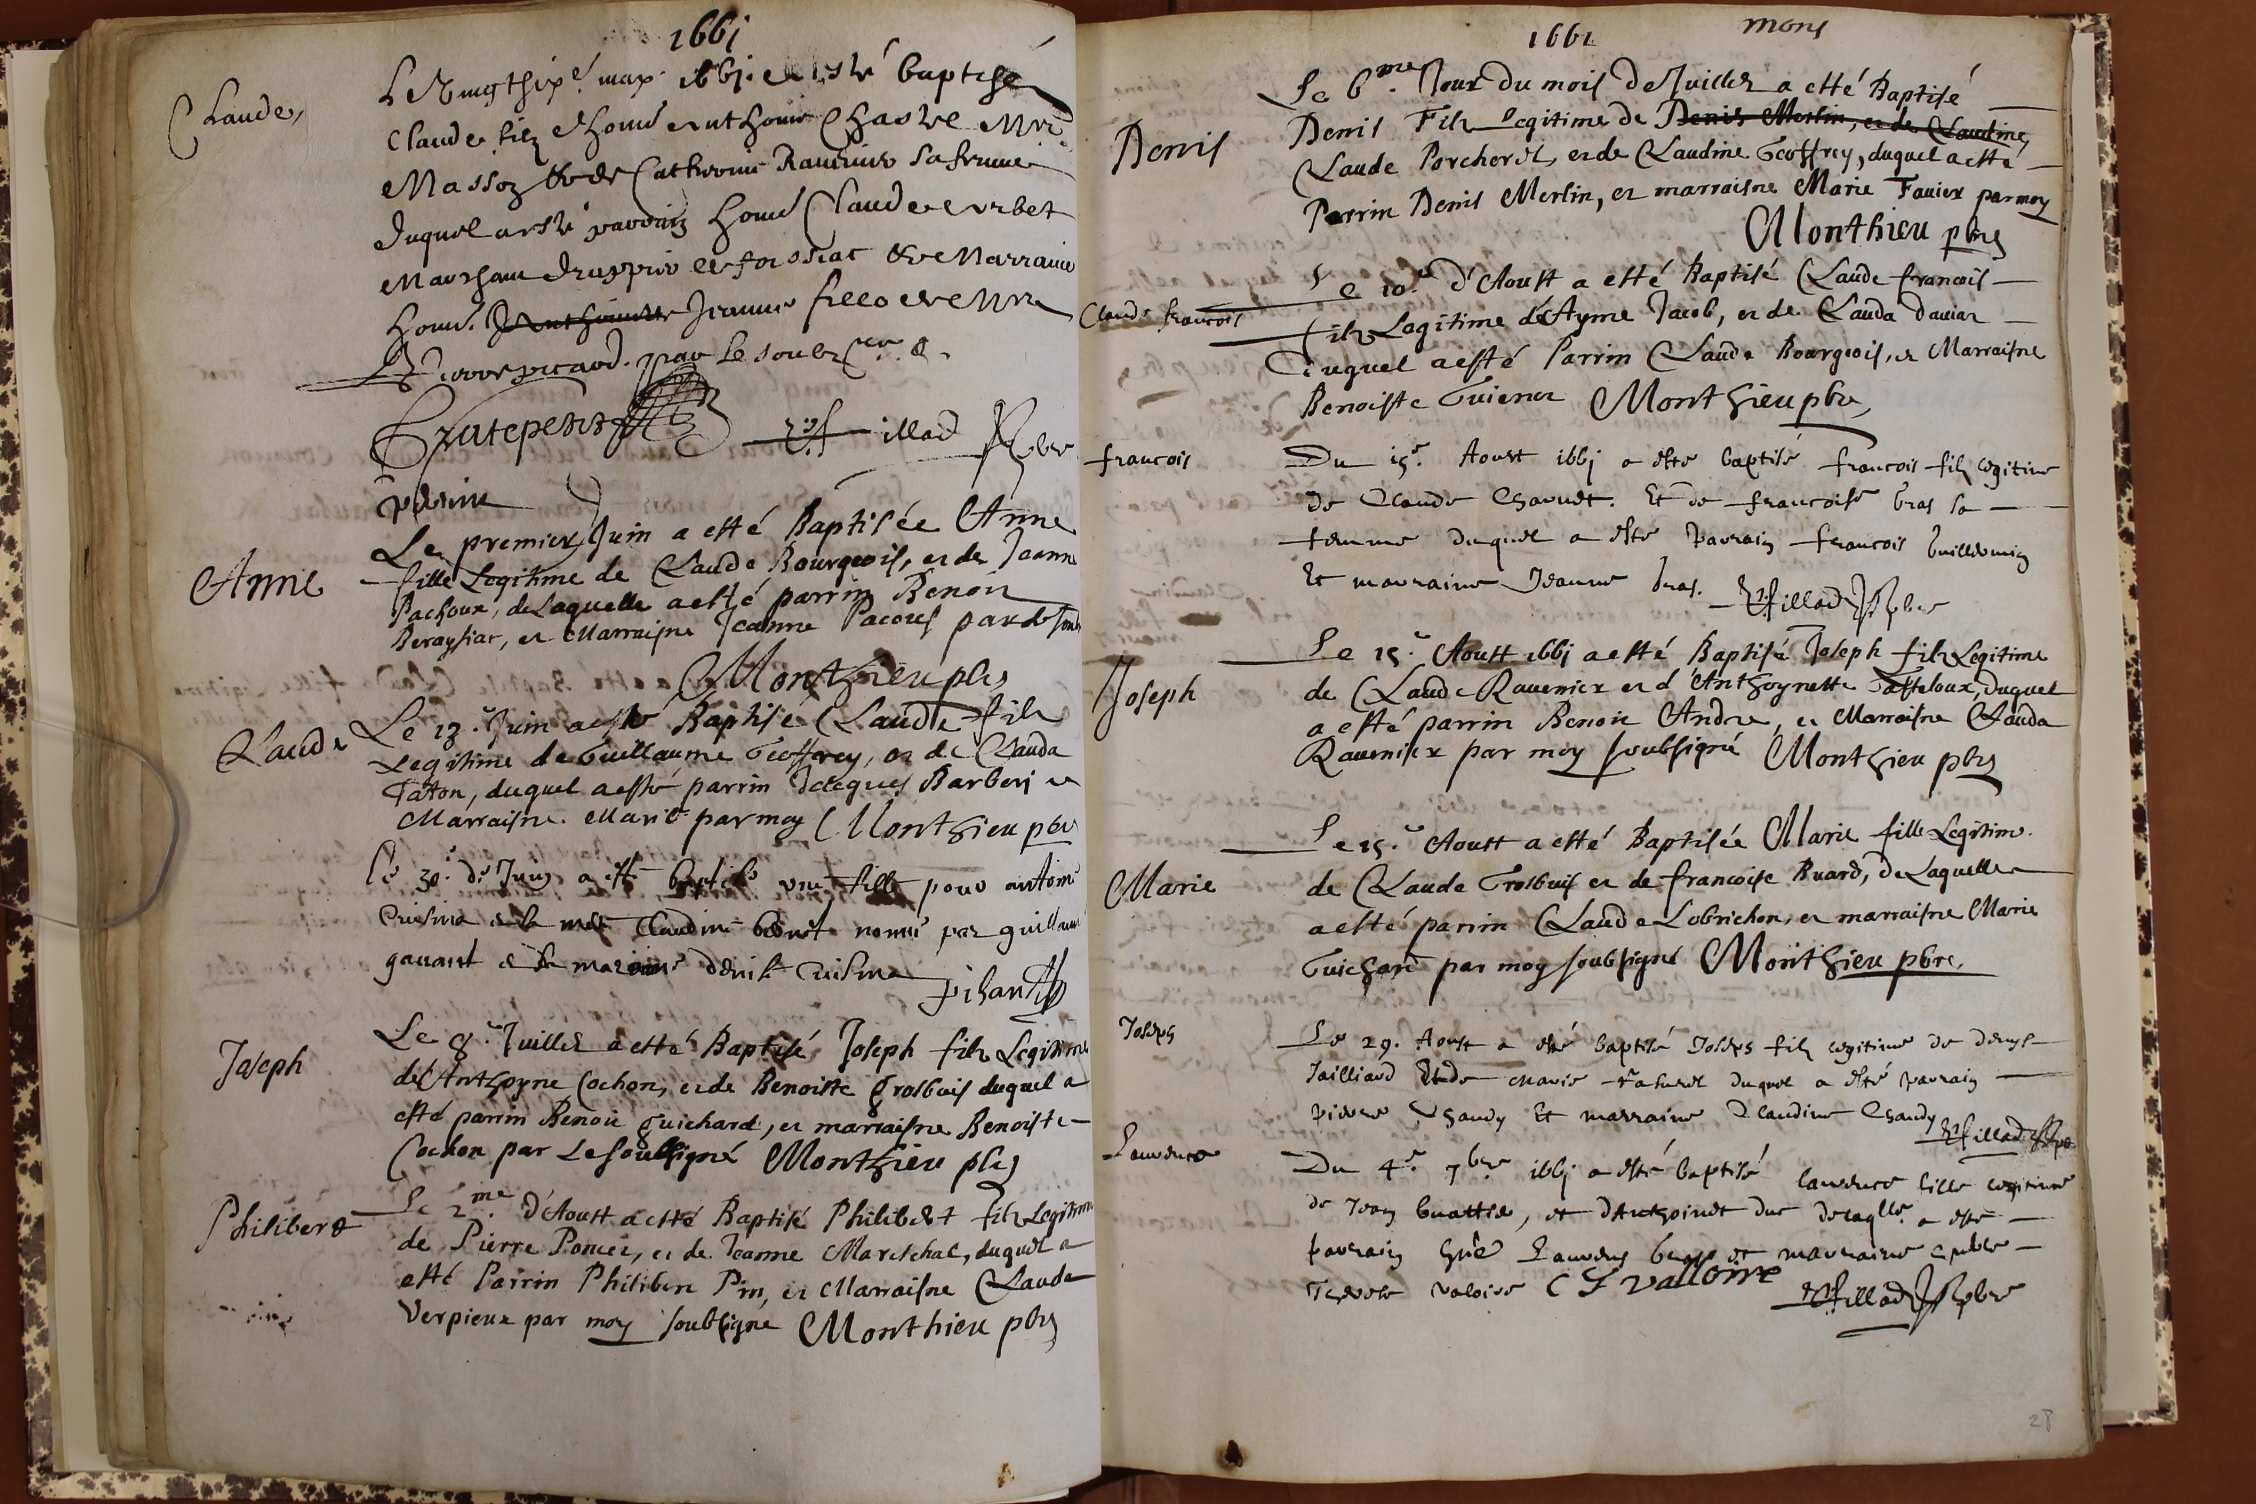 1661
Claude,
Le vingtsixe. may 1661 a esté baptisé
Claude filz d'hon. Anthoine Chastel Mre.
Masson & de Catherine sa femme
duquel a esté parrain hon. Claude
Marchant drappier & Marraine
hon. Jeanne fille de Mre
Pierre picard. par le soubz
pbre
Anne
Le premier Juin a esté Baptisée Anne
fille Legitime de Claude Bourgeois, et de Jeanne
Pachoux, de Laquelle a esté parrin Benoit
et Marraisne Jeanne Pacous par
Monthieu pbre
Claude
Le 13e. Juin a esté Baptisé Claude fils
Legitime de Guillaume Geoffrey, et de Clauda
Taton, duquel a esté parrin Jacques Barberi et
Marraisne. Marie par moy Monthieu pbre
le 30e. de Juin a esté baptisé une fille pour antoine
Cuisina et la mere Claudine nomé par guillaume
gavant et la maraine denise Cuisina
Joseph
Le 8e. Juillet a esté Baptisé Joseph filz Legitime
de Anthoyne Cochon, et de Benoiste Grosbuis duquel a
esté parrin Benoit Guichard, et marraisne Benoiste
Cochon par Le soubsigné Monthieu pbre
Philibert
Le 2me. d'Aoust a esté Baptisé Philibert filz Legitime
de Pierre Poncet, et de Jeanne Mareschal, duquel a
esté Parrin Philibert Pin, et Marraisne Clauda
Verpieux par moy soubsigné Monthieu pbre
1661
mons
Denis
Le 6me. Jour du mois de Juillet a esté Baptisé
Denis Filz Legitime de Denis Merlin, et de Claudine
Claude Porcheret, et de Claudine Geoffrey, duquel a esté
Parrin Denis Merlin, et marraisne Marie Favier par moy
Monthieu pbre
Claude francois
Le 10e d'Aoust a esté Baptisé Claude francois
filz Legitime de Ayme Jacob, et de Clauda Daviat
duquel a esté Parrin Claude Bourgeois, et Marraisne
Benoiste Guienet Monthieu pbre
francois
Du 15e. Aoust 1661 a esté baptisé francois filz legitime
de Claude Chaoudt. Et de francoise bras sa
femme duquel a esté parrain francois Guillermin
Et marraine Jeanne bras.
pbre
Joseph
Le 15e. Aoust 1661 a esté Baptisé Joseph filz Legitime
de Claude Ravenier et d'Anthoynette Tasteloux, duquel
a esté parrin Benoit Andre, et Marraisne Clauda
Ravenier par moy soubsigné Monthieu pbre
Marie
Le 15e. Aoust a esté Baptisée Marie fille Legitime.
de Claude Grosbuis et de francoise Buard, de Laquelle
a esté parrin Claude Lobrichon, et marraisne Marie
Guichard par moy soubsigné Monthieu pbre.
Joseph
Le 29. Aoust a esté baptisé Joseph filz legitime de denys
Jailliard Et de Marie duquel a esté parrain
pierre Chandy Et marraine Claudine Chandy
Laurence
Du 4e. 7bre 1661 a esté baptisé laurence fille legitime
de Jean et d'Anthoinet duc de laqlle. a esté
parrain Laurens et marraine
valoire C F Valloire
pbre
28